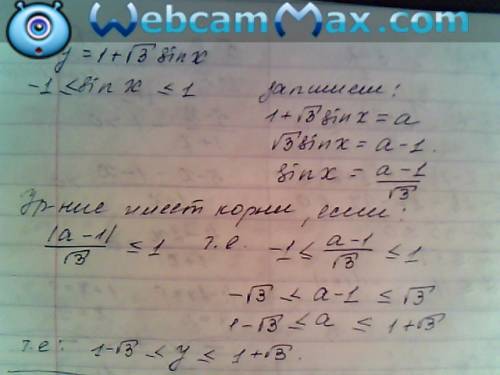 WebcamMax.com
y = 1+√3 sinx
-1 ≤ sin x ≤ 1 запишем:
1+√3 sinx = a
√3 sinx = a-1.
sinx = (a-1)/√3
Ур-ние имеет корни, если:
|a-1|/√3 ≤ 1 т.е. -1 ≤ (a-1)/√3 ≤ 1
-√3 ≤ a-1 ≤ √3
1-√3 ≤ a ≤ 1+√3
т.е: 1-√3 ≤ y ≤ 1+√3.